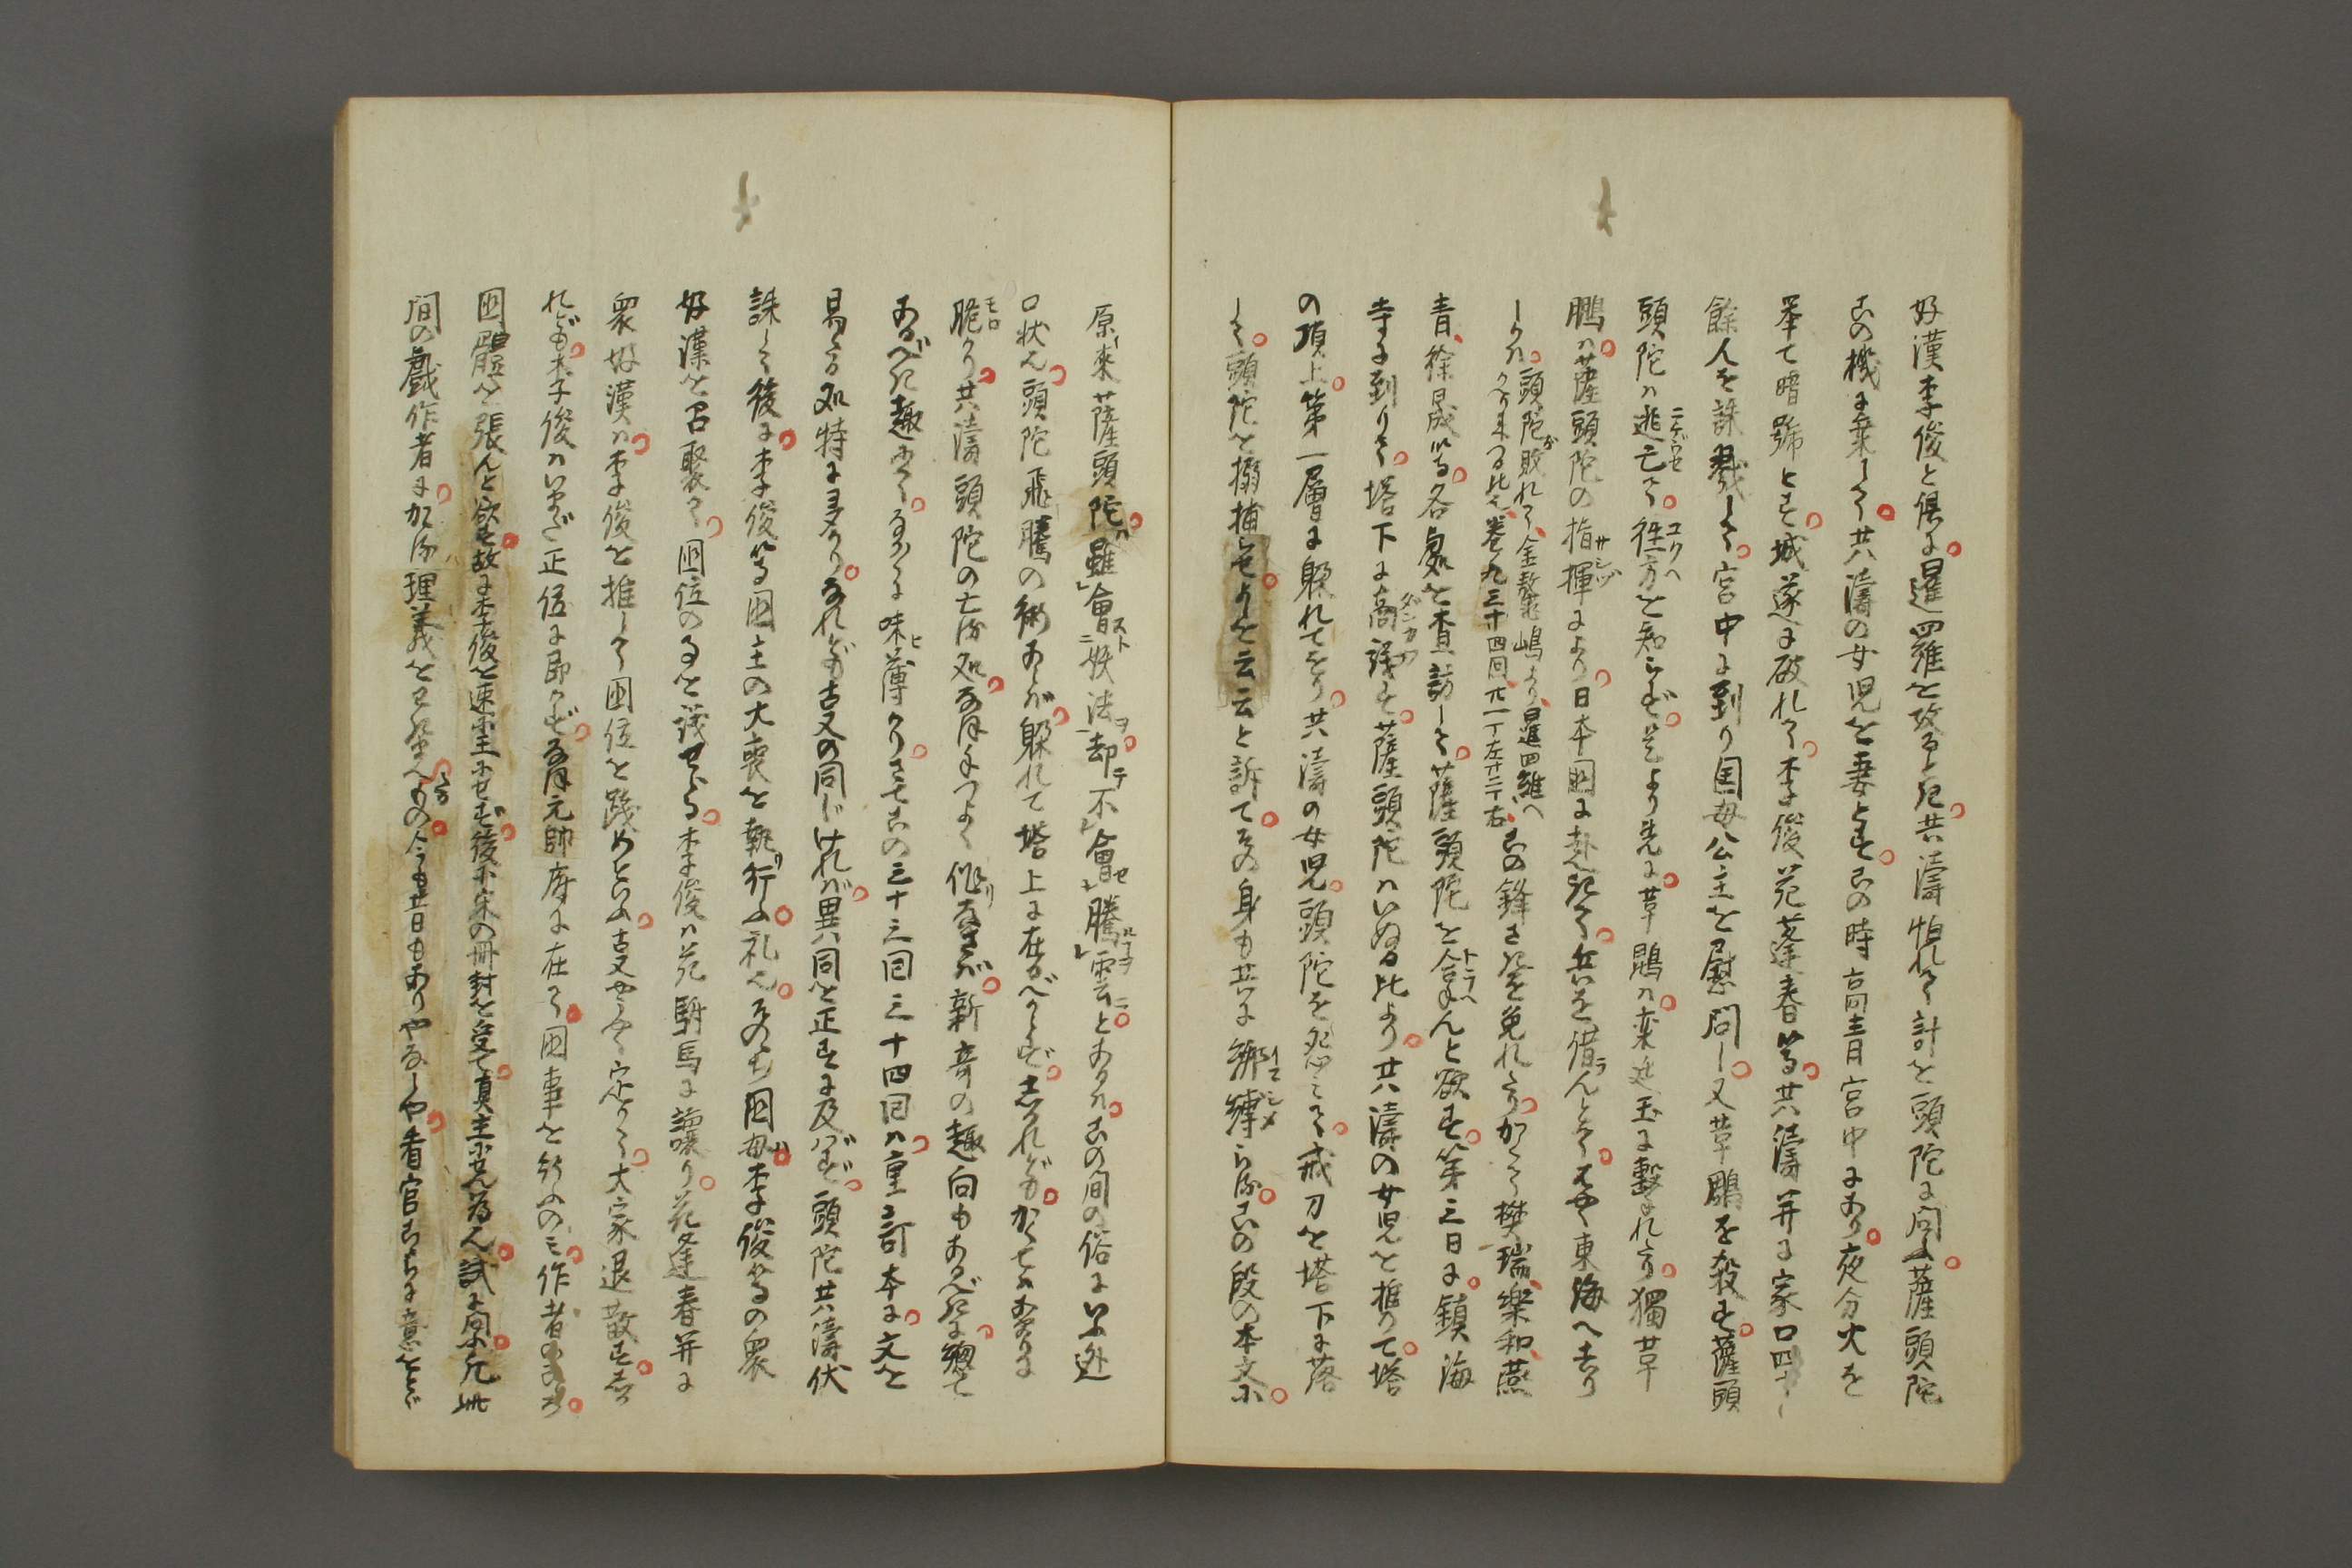 好漢李俊と倶に。暹羅を攻るとき。共濤怕れて計を頭陀に問ふ。薩頭陀
この機に乗して。共濤の女児を妻とす。この時高青宮中にあり。夜分火を
挙て暗號とす。城遂に破れて。李俊花逢春等。共濤并に家口四十
餘人を誅戮して。宮中に到り国母公主を慰問し。又革鵰を殺す。薩頭
頭陀ハ逃亡て。徃方を知らず。是より先に。革鵾ハ。欒廷玉に撃れたり。獨革
鵬ハ。薩頭陀の指揮により。日本國に赴きて。兵を借んとて。はやく東海へ去り
しかハ。頭陀が敗れて、金鰲嶋より、暹羅へかへりまつる比は、巻九三十四回九丁左十二丁右、この鋒さきを免れたり。かくて樊瑞、楽和、燕
青、徐晟等。各處を査訪して。薩頭陀を拿んと欲す。第三日に。鎮海
寺に到りて。塔下に商議す。薩頭陀ハいぬる比より。共濤の女児を推りて。塔
の頂上。第一層に躱れてをり。共濤の女児。頭陀を怨ミて。戒刀を塔下に落
して。頭陀を搦捕せよと云云と訴て。その身も共に綁縛らる。この段の本文に。
原来薩頭陀。雖會妖法。却不會騰雲。とあるハ。この間の俗にいふ逊
口状也。頭陀飛騰の術あらバ。躱れて塔上に在るべからず。しかれども。かくてハあまりに
脆かり。共濤頭陀の亡る処。なほ手つよく作りなさバ。新奇の趣向もあるべきに。總て
あるべき趣なく。なか〳〵に味薄かり。さてこの三十三回三十四回ハ。重訂本に。文を
易たる処特に多かり。なれども古文の同じけれバ。異同を正すに及バず。頭陀共濤伏
誅して後に。李俊等國主の大喪を執行ふ。礼也。そのゝち國母。李俊等の衆
好漢を召聚て。國位の事を議せらる。李俊ハ花駙馬に譲り。花逢春并に
衆好漢ハ。李俊を推して國位を践めといふ。古又やうやく定りて。大家退散す。しか
れども。李俊ハいまだ正位に即かず。なほ元帥府に在て。國事を行ふのミ。作者
國體を張んと欲す。故に李俊を速王にせず。後に宋の冊封を受て。真主にせん為也。試に問ふ。凡世
間の戯作者に。かゝる理義をわきまへたるもの。今も昔もありやなしや。看官こゝらに意をとゞ